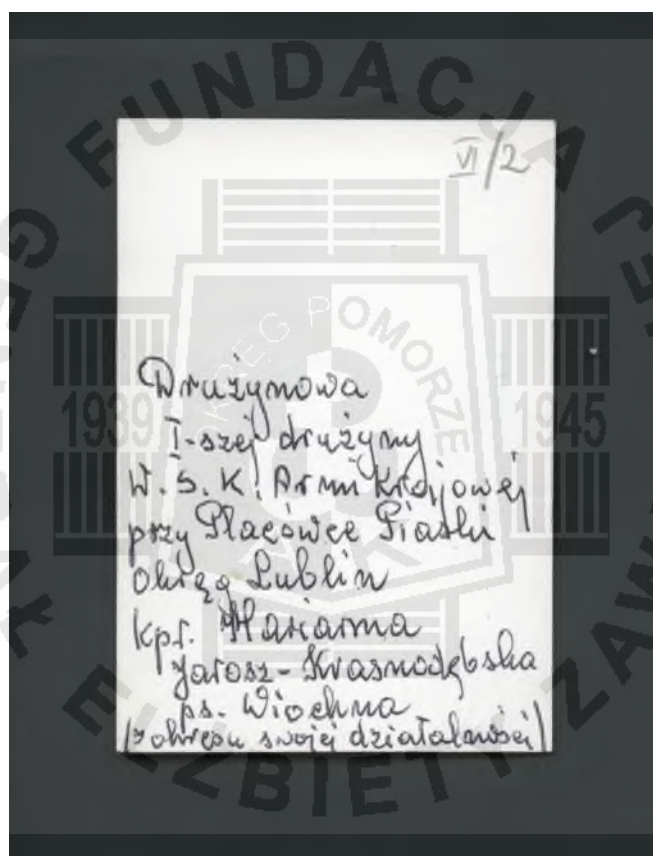 VI/2
Drużynowa
I-szej drużyny
W.S.K. Armii Krajowej
przy Placówce Piaski
Okręg Lublin
kpr. Marianna
Jarosz-Krasnodębska
ps. Wiochna
/z okresu swojej działalności/
FUNDACJA
ELŻBIETY ZAW
OKRĘG POMORZE
AK
1939
1945